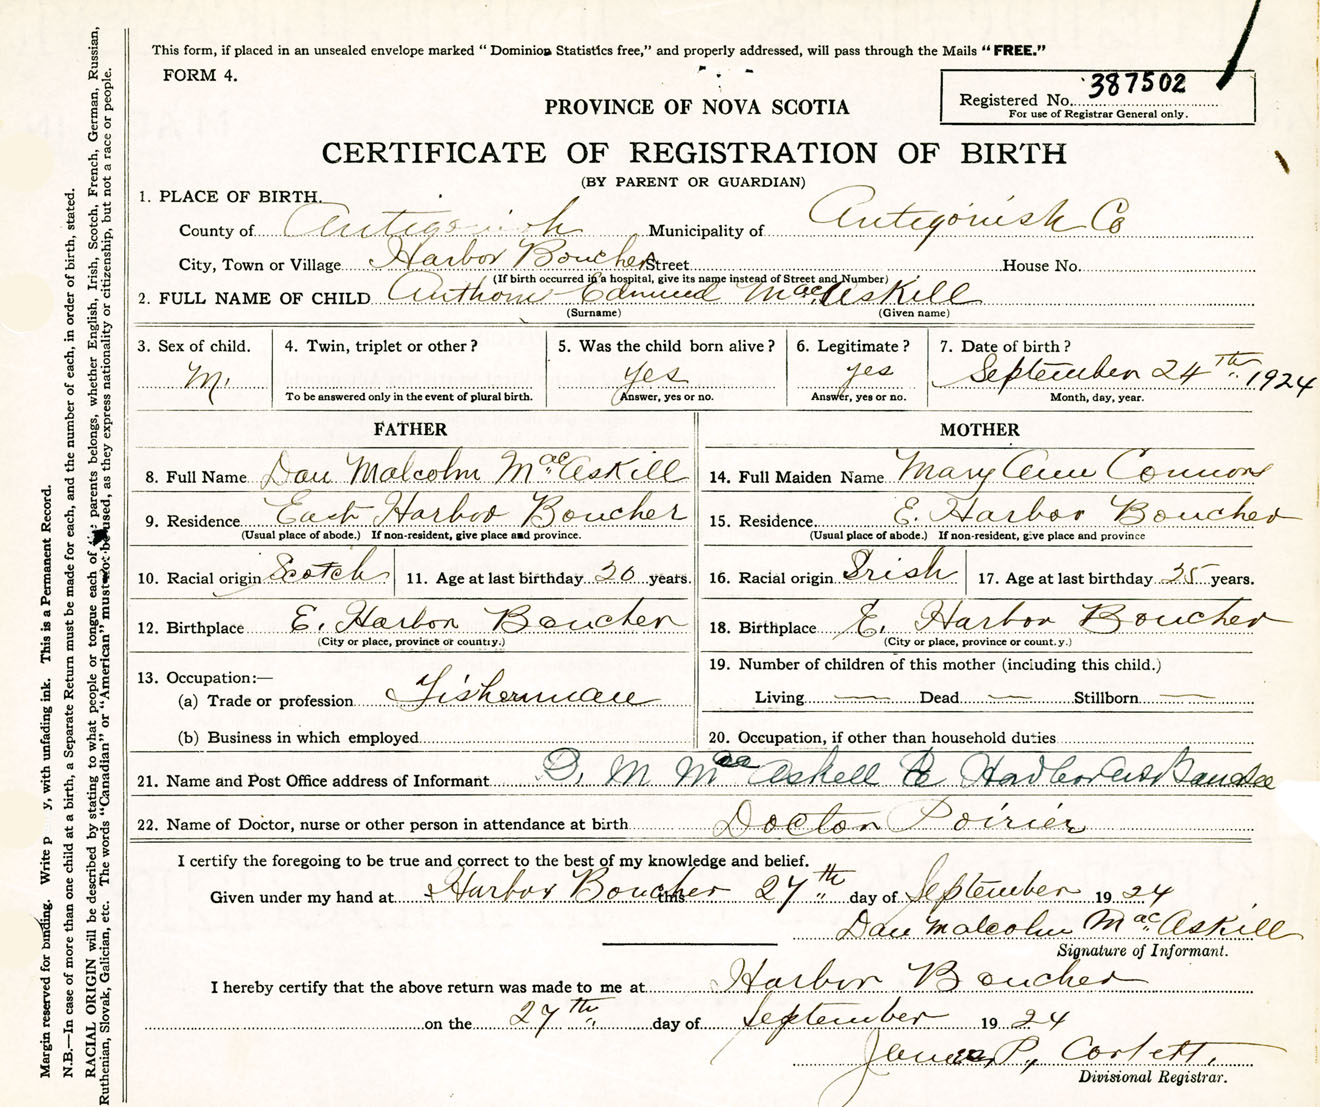 This form, if placed in an unsealed envelope marked "Dominion Statistics free," and properly addressed, will pass through the Mails "FREE."
FORM 4.
387502
Registered No.
For use of Registrar General only.
PROVINCE OF NOVA SCOTIA
CERTIFICATE OF REGISTRATION OF BIRTH
(BY PARENT OR GUARDIAN)
1. PLACE OF BIRTH.
County of Antigonish Municipality of Antigonish Co
City, Town or Village Harbor Boucher Street House No.
(If birth occurred in a hospital, give its name instead of Street and Number)
2. FULL NAME OF CHILD Anthony Edmund MacAskill
(Surname) (Given name)
3. Sex of child. 4. Twin, triplet or other? 5. Was the child born alive? 6. Legitimate? 7. Date of birth?
M. yes yes September 24th 1924
To be answered only in the event of plural birth. Answer, yes or no. Answer, yes or no. Month, day, year.
FATHER MOTHER
8. Full Name Dan Malcolm MacAskill 14. Full Maiden Name Mary Ann Connors
9. Residence East Harbor Boucher 15. Residence E. Harbor Boucher
(Usual place of abode.) If non-resident, give place and province. (Usual place of abode.) If non-resident, give place and province
10. Racial origin Scotch 11. Age at last birthday 30 years. 16. Racial origin Irish 17. Age at last birthday 25 years.
12. Birthplace E. Harbor Boucher 18. Birthplace E. Harbor Boucher
(City or place, province or country.) (City or place, province or count.y.)
13. Occupation:— 19. Number of children of this mother (including this child.)
(a) Trade or profession Fisherman Living — Dead — Stillborn —
(b) Business in which employed 20. Occupation, if other than household duties
21. Name and Post Office address of Informant D. M MacAskell
22. Name of Doctor, nurse or other person in attendance at birth Doctor Poirier
I certify the foregoing to be true and correct to the best of my knowledge and belief.
Given under my hand at Harbor Boucher this 27th day of September 1924
Dan Malcolm MacAskill
Signature of Informant.
I hereby certify that the above return was made to me at Harbor Boucher
on the 27th day of September 1924
James P. Corbett.
Divisional Registrar.
Margin reserved for binding. Write p y, with unfading ink. This is a Permanent Record.
N.B.—In case of more than one child at a birth, a Separate Return must be made for each, and the number of each, in order of birth, stated.
RACIAL ORIGIN will be described by stating to what people or tongue each of parents belongs, whether English, Irish, Scotch, French, German, Russian,
Ruthenian, Slovak, Galician, etc. The words "Canadian" or "American" must not be used, as they express nationality or citizenship, but not a race or people.